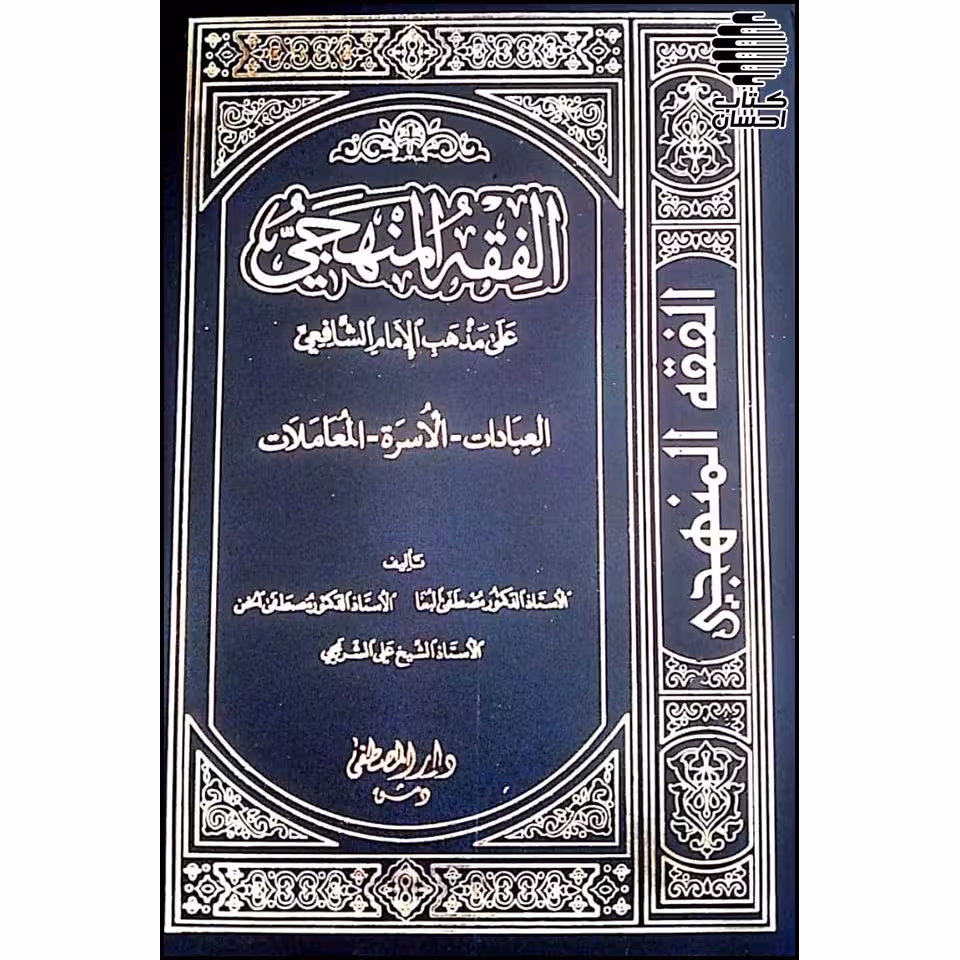 كتاب
احسان
الفِقْهُ المَنْهَجِيُّ
عَلى مَذْهَبِ الإِمَامِ الشَّافِعِيّ
العِبَادَات - الأُسْرَة - المُعَامَلَات
تأليف
الأستاذ الدكتور مصطفى البغا الأستاذ الدكتور مصطفى الخن
الأستاذ الشيخ علي الشربجي
دار المصطفى
دمشق
الفقه المنهجي